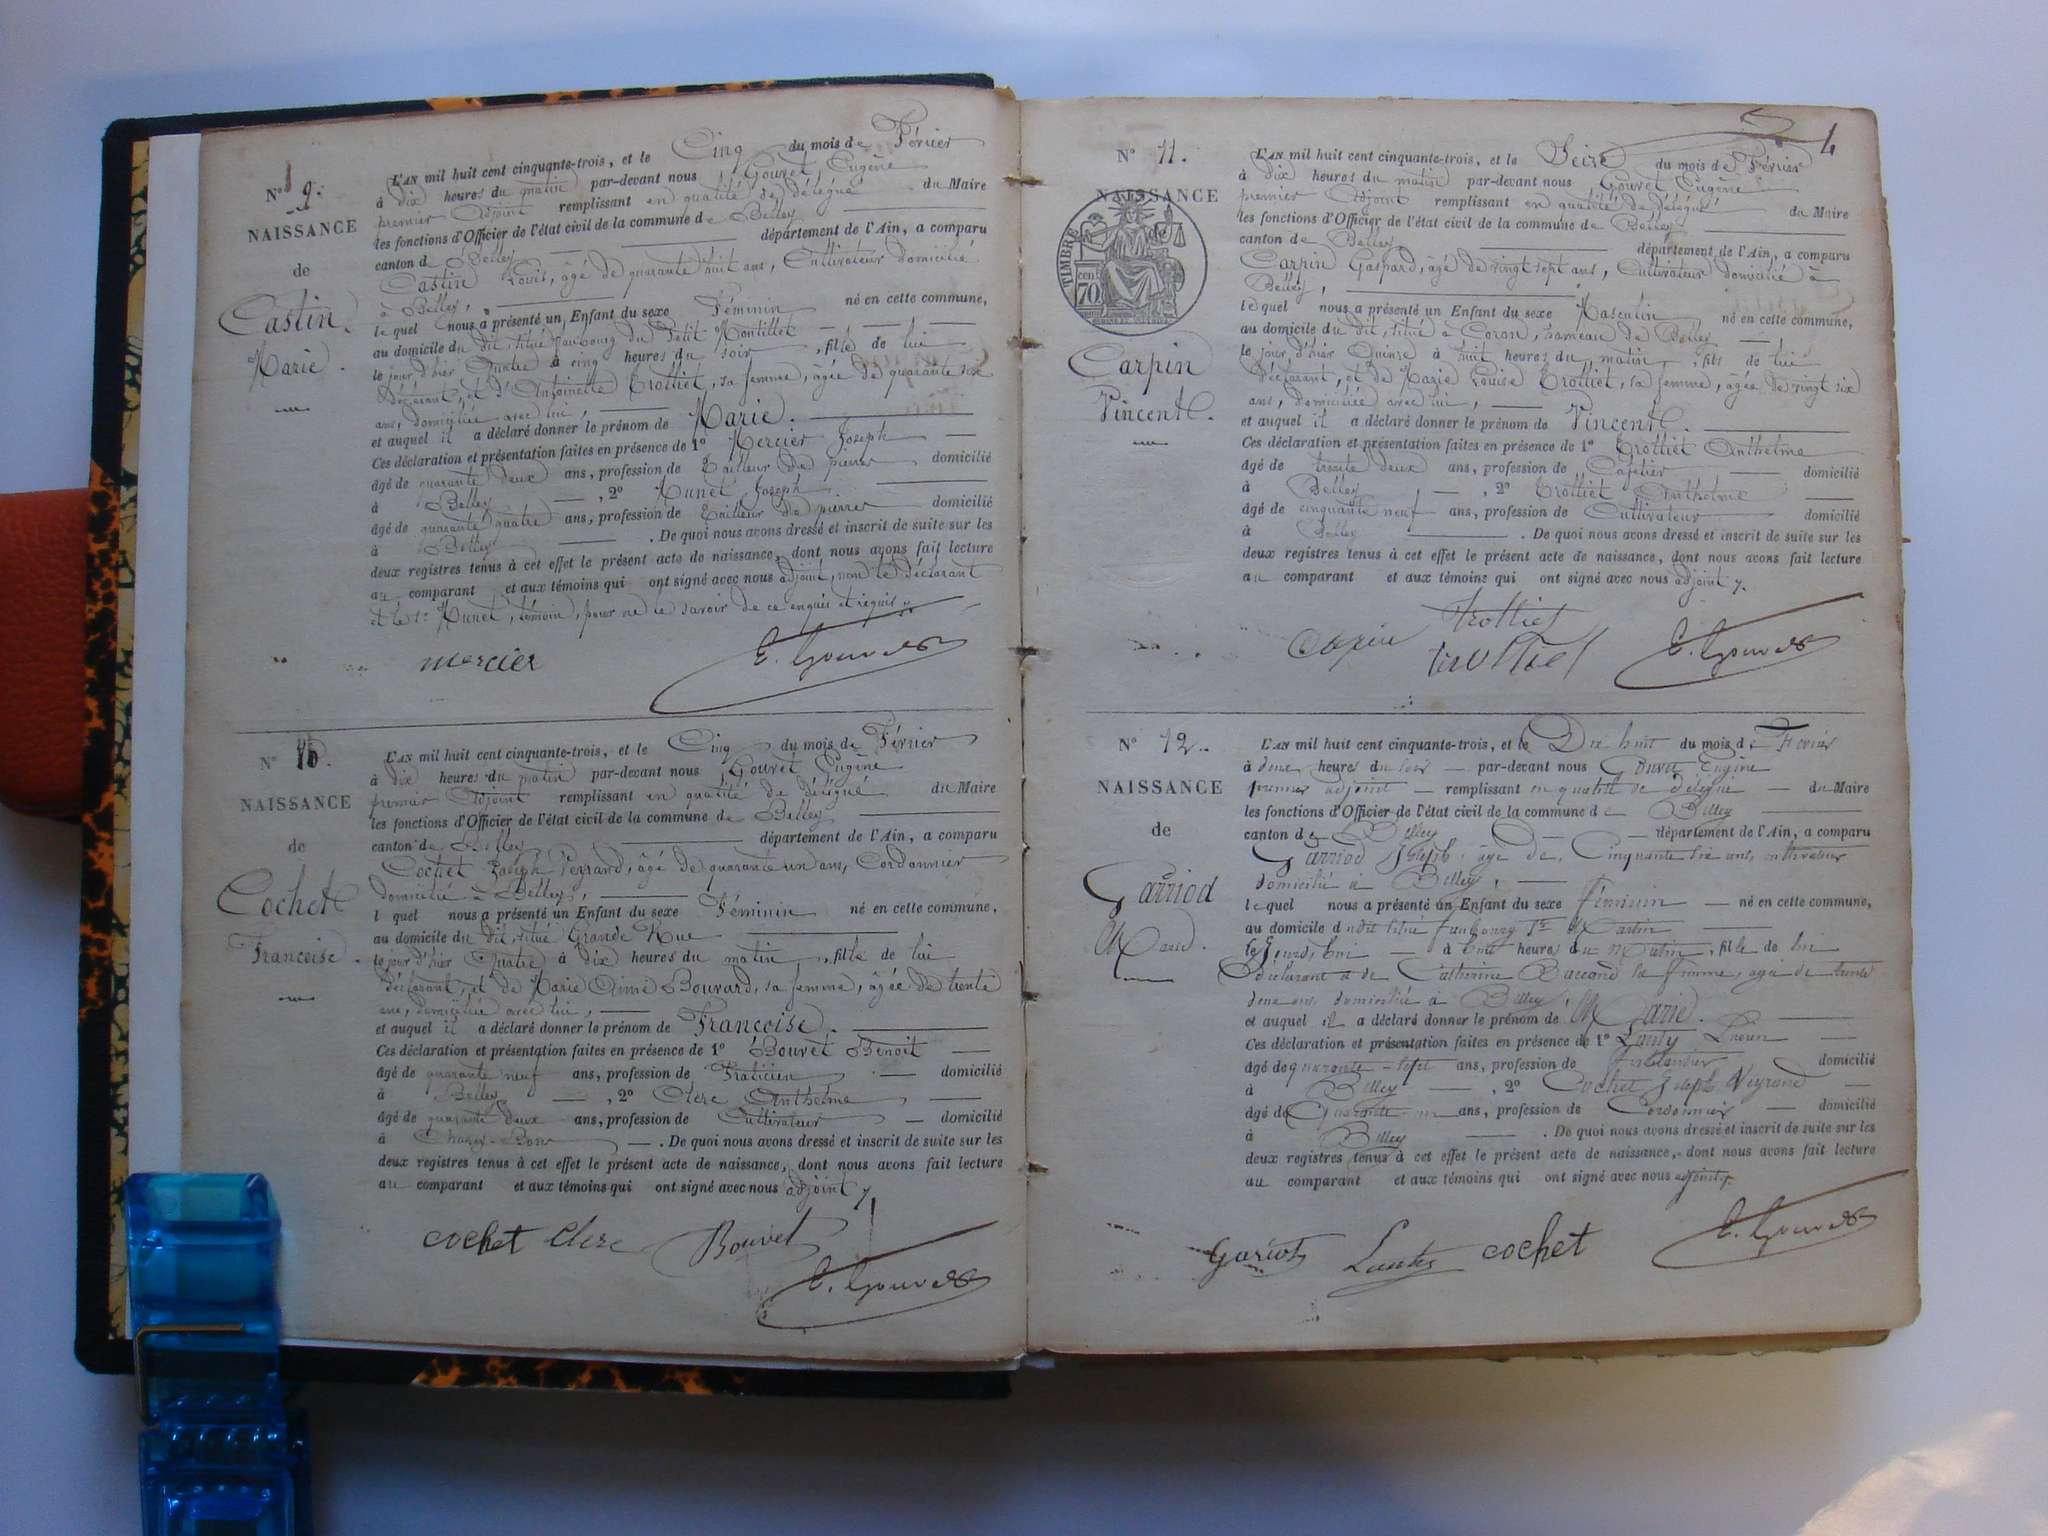 Nº 9.
NAISSANCE
de
Castin
Marie.
L'AN mil huit cent cinquante-trois, et le Cinq du mois de Février
à Dix heures du matin par-devant nous Gouvet Eugène
premier Adjoint remplissant en qualité de délégué du Maire
les fonctions d'Officier de l'état civil de la commune de Belley
canton de Belley département de l'Ain, a comparu
Castin Louis, âgé de quarante huit ans, Cultivateur domicilié
à Belley,
le quel nous a présenté un Enfant du sexe Féminin né en cette commune,
au domicile du dit, situé faubourg du Petit Montillet
le jour d'hier Quatre à cinq heures du soir, fille de lui
déclarant, et d'Antoinette Trolliet, sa femme, âgée de quarante six
ans, domiciliée avec lui,
et auquel il a déclaré donner le prénom de Marie.
Ces déclaration et présentation faites en présence de 1º Mercier Joseph
âgé de quarante deux ans, profession de Tailleur de pierres domicilié
à Belley, 2º Munet Joseph
âgé de quarante quatre ans, profession de Tailleur de pierres domicilié
à Belley. De quoi nous avons dressé et inscrit de suite sur les
deux registres tenus à cet effet le présent acte de naissance, dont nous avons fait lecture
au comparant et aux témoins qui ont signé avec nous adjoint, non le déclarant
et le Sr Munet, témoin, pour ne le savoir de ce enquis et requis
mercier E. Gouvet
Nº 10.
NAISSANCE
de
Cochet
Françoise.
L'AN mil huit cent cinquante-trois, et le Cinq du mois de Février
à dix heures du matin par-devant nous Gouvet Eugène
premier Adjoint remplissant en qualité de délégué du Maire
les fonctions d'Officier de l'état civil de la commune de Belley
canton de Belley département de l'Ain, a comparu
Cochet Joseph Veyrand, âgé de quarante un ans, Cordonnier
domicilié à Belley,
l quel nous a présenté un Enfant du sexe Féminin né en cette commune,
au domicile du dit, situé Grande Rue
le jour d'hier Quatre à dix heures du matin, fille de lui
déclarant, et de Marie Aimé Bouvard, sa femme, âgée de trente
ans, domiciliée avec lui,
et auquel il a déclaré donner le prénom de Françoise.
Ces déclaration et présentation faites en présence de 1º Bouvet Benoit
âgé de quarante neuf ans, profession de Praticien domicilié
à Belley, 2º Clerc Anthelme
âgé de quarante deux ans, profession de Cultivateur domicilié
à. De quoi nous avons dressé et inscrit de suite sur les
deux registres tenus à cet effet le présent acte de naissance, dont nous avons fait lecture
au comparant et aux témoins qui ont signé avec nous adjoint
cochet Clerc Bouvet
E. Gouvet
4
Nº 11.
NAISSANCE
TIMBRE
70 cent
Carpin
Vincent.
L'AN mil huit cent cinquante-trois, et le Seize du mois de Février
à Dix heures du matin par-devant nous Gouvet Eugène
premier Adjoint remplissant en qualité de délégué du Maire
les fonctions d'Officier de l'état civil de la commune de Belley
canton de Belley département de l'Ain, a comparu
Carpin Gaspard, âgé de vingt sept ans, Cultivateur domicilié à
Belley,
le quel nous a présenté un Enfant du sexe Masculin né en cette commune,
au domicile du dit, situé à Coron, hameau de Belley
le jour d'hier Quinze à huit heures du matin, fils de lui
déclarant, et de Marie Louise Trolliet, sa femme, âgée de vingt six
ans, domiciliée avec lui,
et auquel il a déclaré donner le prénom de Vincent.
Ces déclaration et présentation faites en présence de 1º Trolliet Anthelme
âgé de trente deux ans, profession de Cafetier domicilié
à Belley, 2º Trolliet Anthelme
âgé de cinquante neuf ans, profession de Cultivateur domicilié
à Belley. De quoi nous avons dressé et inscrit de suite sur les
deux registres tenus à cet effet le présent acte de naissance, dont nous avons fait lecture
au comparant et aux témoins qui ont signé avec nous adjoint
Trolliet
Carpin Trolliet E. Gouvet
Nº 12.
NAISSANCE
de
Garriod
Marie.
L'AN mil huit cent cinquante-trois, et le Dix huit du mois de Fevrier
à deux heures du soir par-devant nous Gouvet Eugène
premier adjoint remplissant en qualité de délégué du Maire
les fonctions d'Officier de l'état civil de la commune de Belley
canton de Belley département de l'Ain, a comparu
Garriod Joseph âgé de Cinquante six ans, cultivateur
domicilié à Belley,
le quel nous a présenté un Enfant du sexe féminin né en cette commune,
au domicile du dit situé faubourg St Martin
le jourd'hui à huit heures du matin, fille de lui
déclarant et de Catherine sa femme, agée de trente
deux ans domiciliée à Belley
et auquel il a déclaré donner le prénom de Marie.
Ces déclaration et présentation faites en présence de 1º Lanty
âgé de quarante-sept ans, profession de domicilié
à Belley, 2º Cochet Joseph Veyrand
âgé de Quarante-un ans, profession de Cordonnier domicilié
à Belley. De quoi nous avons dressé et inscrit de suite sur les
deux registres tenus à cet effet le présent acte de naissance, dont nous avons fait lecture
au comparant et aux témoins qui ont signé avec nous adjoint
Gariod Lanty cochet E. Gouvet